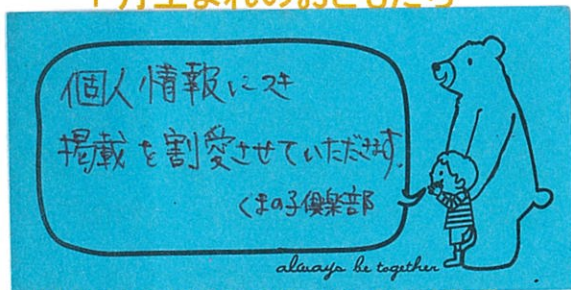 月生まれのおともだち
個人情報につき
掲載を割愛させていただきます。
くまの子倶楽部
always be together